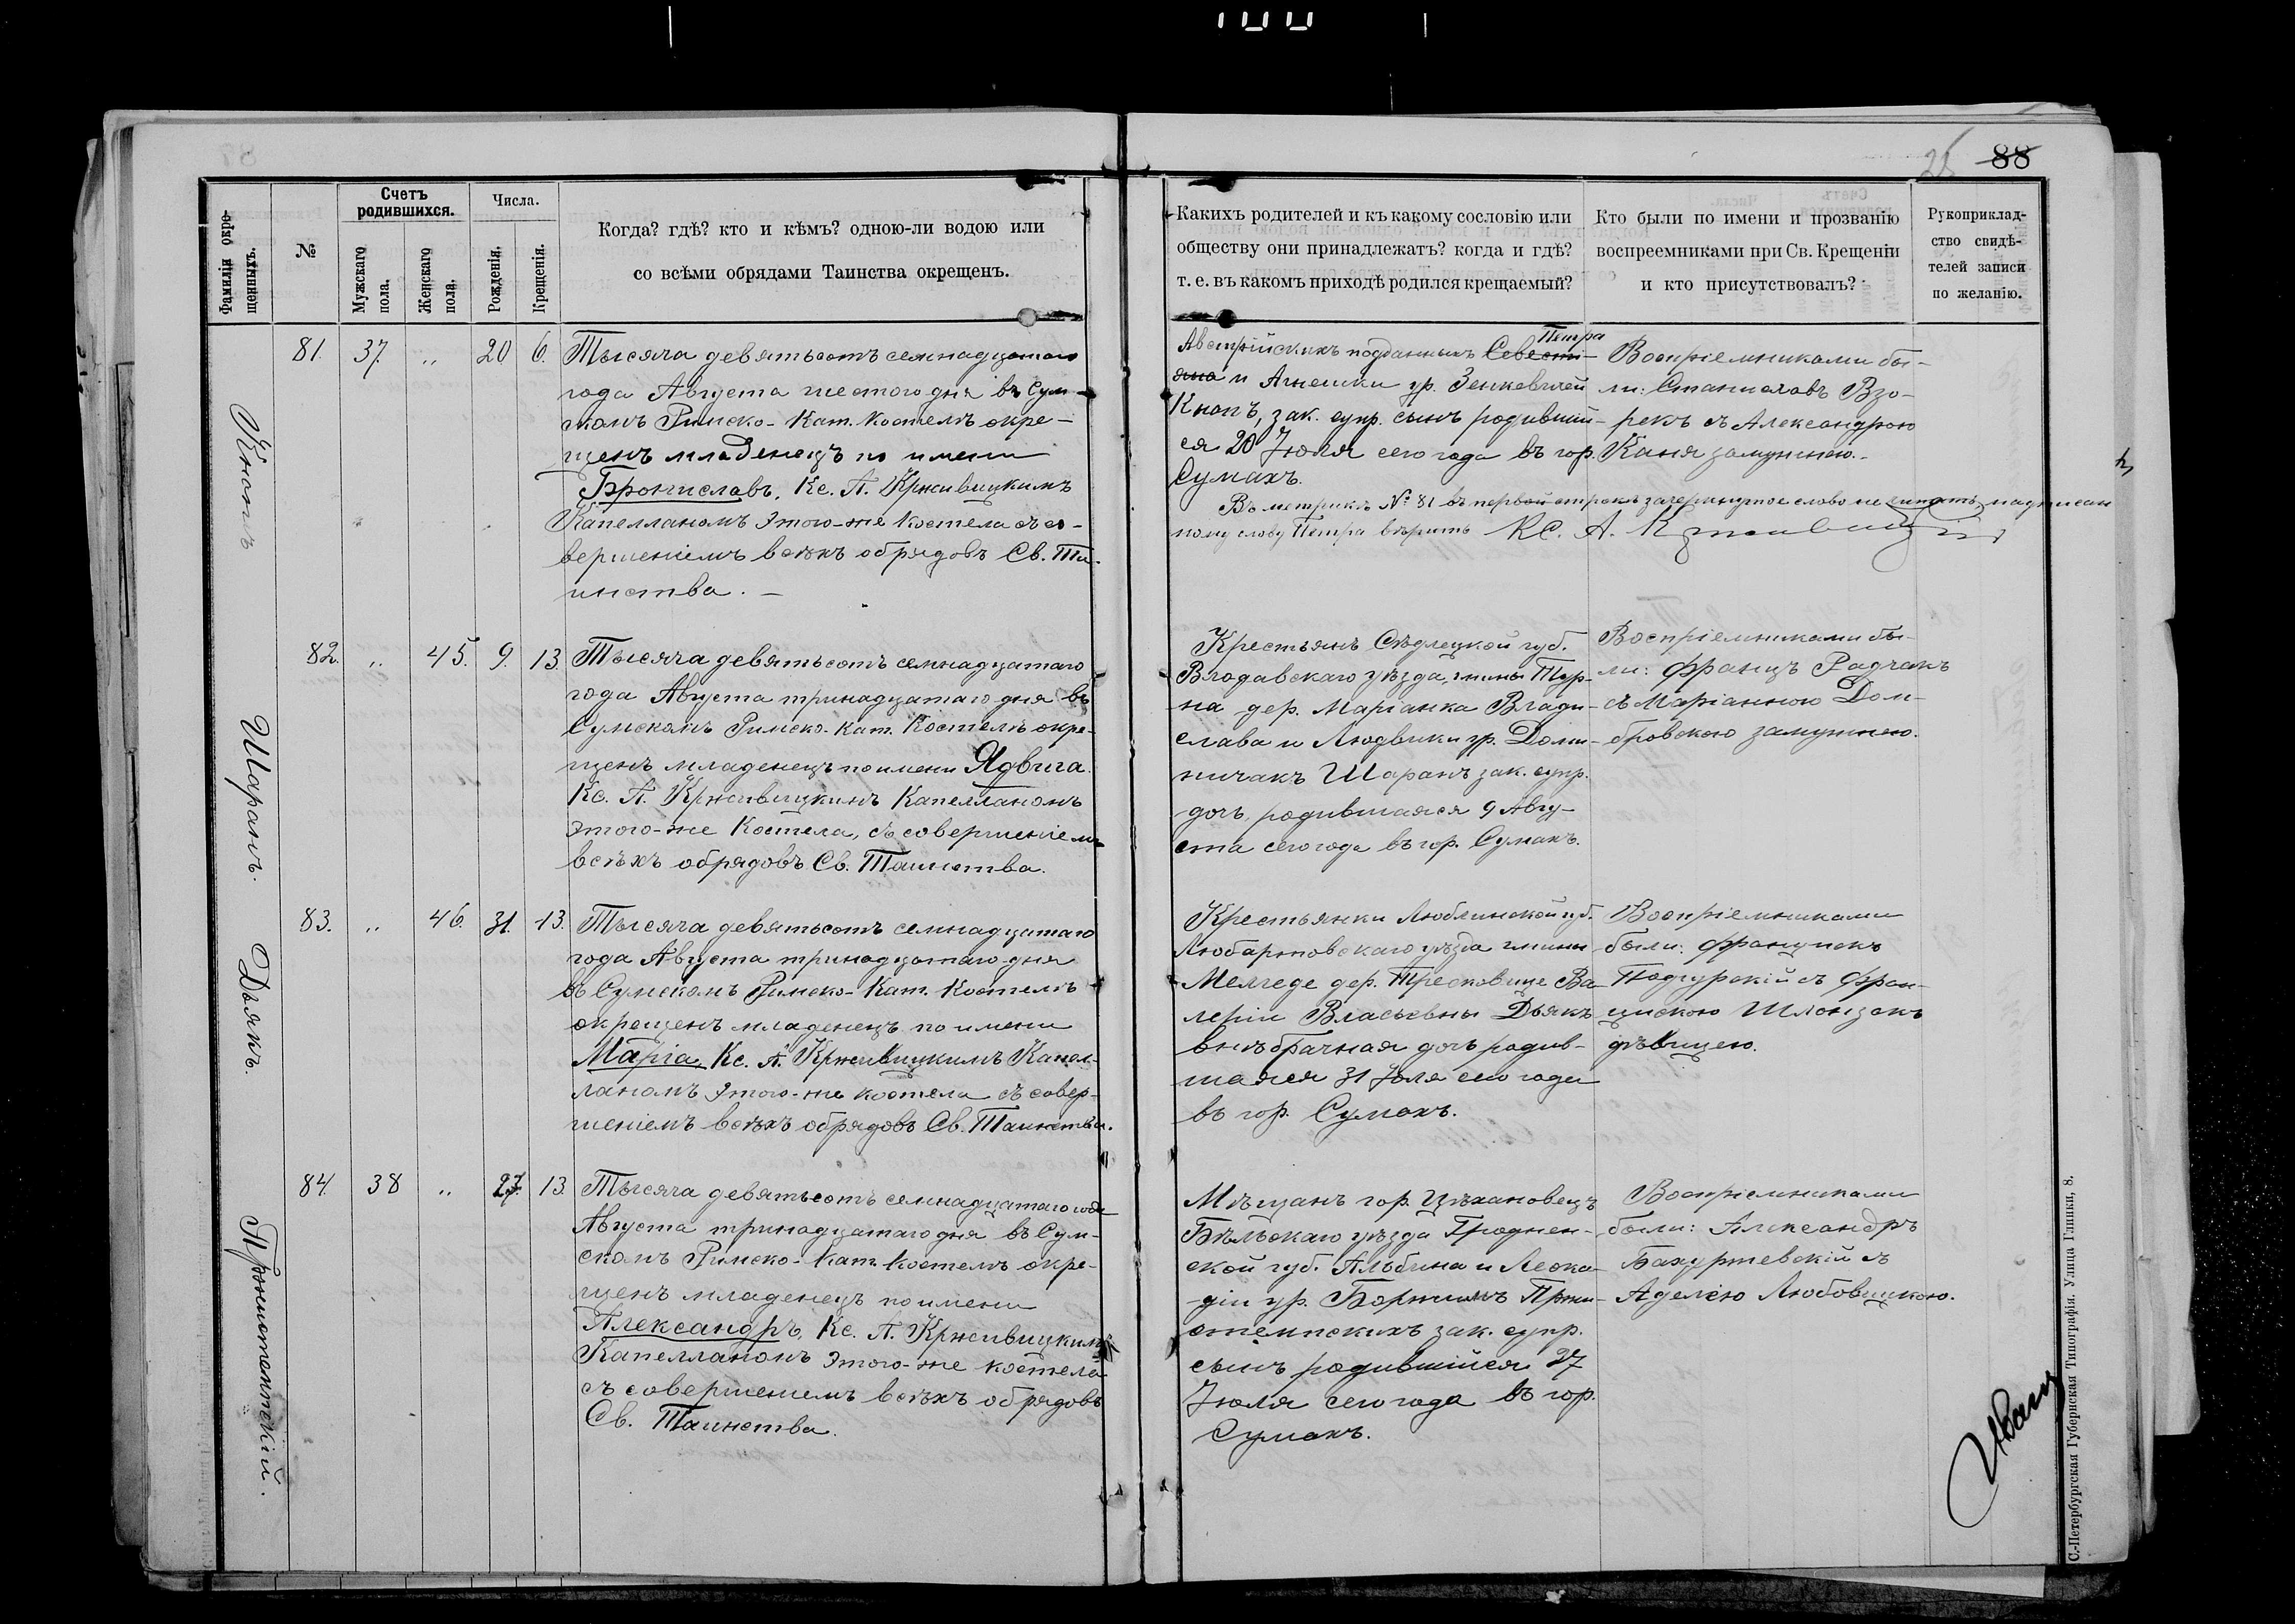 25 88
Фамиліи окре-
щенныхъ.
№
Счетъ
родившихся.
Мужскаго
пола.
Женскаго
пола.
Числа.
Рожденія.
Крещенія.
Когда? гдѣ? кто и кѣмъ? одною-ли водою или
со всѣми обрядами Таинства окрещенъ.
Какихъ родителей и къ какому сословію или
обществу они принадлежатъ? когда и гдѣ?
т. е. въ какомъ приходѣ родился крещаемый?
Кто были по имени и прозванію
воспреемниками при Св. Крещеніи
и кто присутствовалъ?
Рукоприклад-
ство свидѣ-
телей записи
по желанію.
Кнопъ
81. 37. „ 20 6.
Тысяча девятьсотъ семнадцатаго
года Августа шестого дня въ Сум-
скомъ Римско-Кат. Костелѣ окре-
щенъ младенецъ по имени
Брониславъ, Кс. А. Крживицкимъ
Капелланомъ этого-же Костела съ со-
вершеніемъ всѣхъ обрядовъ Св. Та-
инства. —
Петра
Австрійскихъ подданныхъ Севасті-
яна и Агнешки ур. Зенкевичей
Кнопъ, зак. супр. сынъ родивший-
ся 20 Іюля сего года въ гор.
Сумахъ.
Воспріемниками бы-
ли: Станиславъ Взо-
рекъ съ Александрою
Каня замужнею.
Въ метрикѣ № 81 въ первой строкѣ зачеркнутое слово не читать, надписан
ному слову Петра вѣрить Кс. А. Крживицкій
Шаранъ.
82. „ 45. 9. 13.
Тысяча девятьсотъ семнадцатаго
года Августа тринадцатаго дня въ
Сумскомъ Римско-Кат. Костелѣ окре-
щенъ младенецъ по имени Ядвига.
Кс. А. Крживицкимъ Капелланомъ
этого-же Костела, съ совершеніемъ
всѣхъ обрядовъ Св. Таинства.
Крестьянъ Сѣдлецкой губ.
Влодавскаго уѣзда, гмины Тур-
на дер. Маріанка Влади-
слава и Людвики ур. Доми-
ничакъ Шаранъ зак. супр.
дочь, родившаяся 9 Авгу-
ста сего года въ гор. Сумахъ.
Воспріемниками бы-
ли: Францъ Радчакъ
съ Маріанною Дом-
бровскою замужнею.
Дьякъ.
83. „ 46. 31. 13.
Тысяча девятьсотъ семнадцатаго
года Августа тринадцатаго дня
въ Сумскомъ Римско-Кат. Костелѣ
окрещенъ младенецъ по имени
Марія, Кс. А. Крживицкимъ Капел-
ланомъ этого-же костела съ совер-
шеніемъ всѣхъ обрядовъ Св. Таинства.
Крестьянки Люблинской губ.
Любартовскаго уѣзда гмины
Мелгеде дер. Тресковице Ва-
леріи Власьевны Дьякъ
внѣбрачная дочь родив-
шаяся 31 Іюля сего года
въ гор. Сумахъ.
Воспріемниками
были: Францискъ
Подгурскій съ Фран-
цискою Шлонзакъ
дѣвицею.
Пржиотемпскій.
84. 38 „ 27. 13.
Тысяча девятьсотъ семнадцатаго года
Августа тринадцатаго дня въ Сум-
скомъ Римско-Кат. Костелѣ окре-
щенъ младенецъ по имени
Александръ, Кс. А. Крживицкимъ
Капелланомъ этого-же костела
съ совершеніемъ всѣхъ обрядовъ
Св. Таинства.
Мѣщанъ гор. Цѣхановецъ
Бѣльскаго уѣзда Гроднен-
ской губ. Альбина и Леока-
діи ур. Боржимъ Пржи-
стемпскихъ зак. супр.
сынъ родившійся 27
Іюля сего года въ гор.
Сумахъ.
Воспріемниками
были: Александръ
Бахуржевскій съ
Аделію Любовицкою.
С.-Петербургская Губернская Типографія. Улица Глинки, 8.